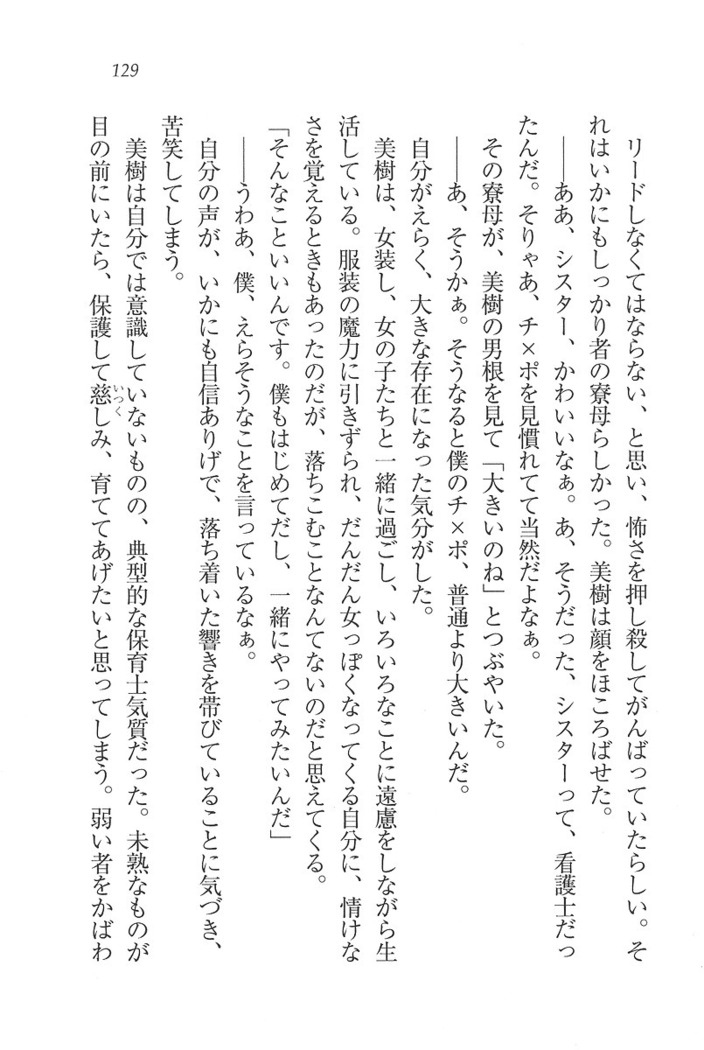 129
リードしなくてはならない、と思い、怖さを押し殺してがんばっていたらしい。そ
れはいかにもしっかり者の寮母らしかった。美樹は顔をほころばせた。
――ああ、シスター、かわいいなぁ。あ、そうだった、シスターって、看護士だっ
たんだ。そりゃあ、チ×ポを見慣れてて当然だよなぁ。
その寮母が、美樹の男根を見て「大きいのね」とつぶやいた。
――あ、そうかぁ。そうなると僕のチ×ポ、普通より大きいんだ。
自分がえらく、大きな存在になった気分がした。
美樹は、女装し、女の子たちと一緒に過ごし、いろいろなことに遠慮をしながら生
活している。服装の魔力に引きずられ、だんだん女っぽくなってくる自分に、情けな
さを覚えるときもあったのだが、落ちこむことなんてないのだと思えてくる。
「そんなこといいんです。僕もはじめてだし、一緒にやってみたいんだ」
――うわあ、僕、えらそうなことを言っているなぁ。
自分の声が、いかにも自信ありげで、落ち着いた響きを帯びていることに気づき、
苦笑してしまう。
美樹は自分では意識していないものの、典型的な保育士気質だった。未熟なものが
目の前にいたら、保護して慈いつくしみ、育ててあげたいと思ってしまう。弱い者をかばわ